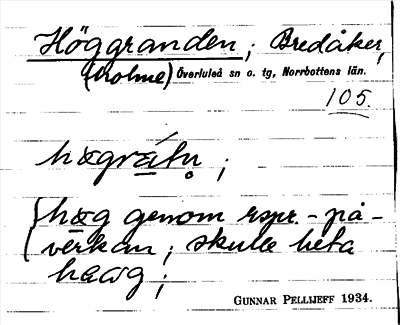 Höggranden; Bredåker,
(holme) Överluleå sn o. tg, Norrbottens län.
105.
hægrátṇ;
{hæg genom rspr.-på-
verkan; skulle heta
haωg;
GUNNAR PELLIJEFF 1934.